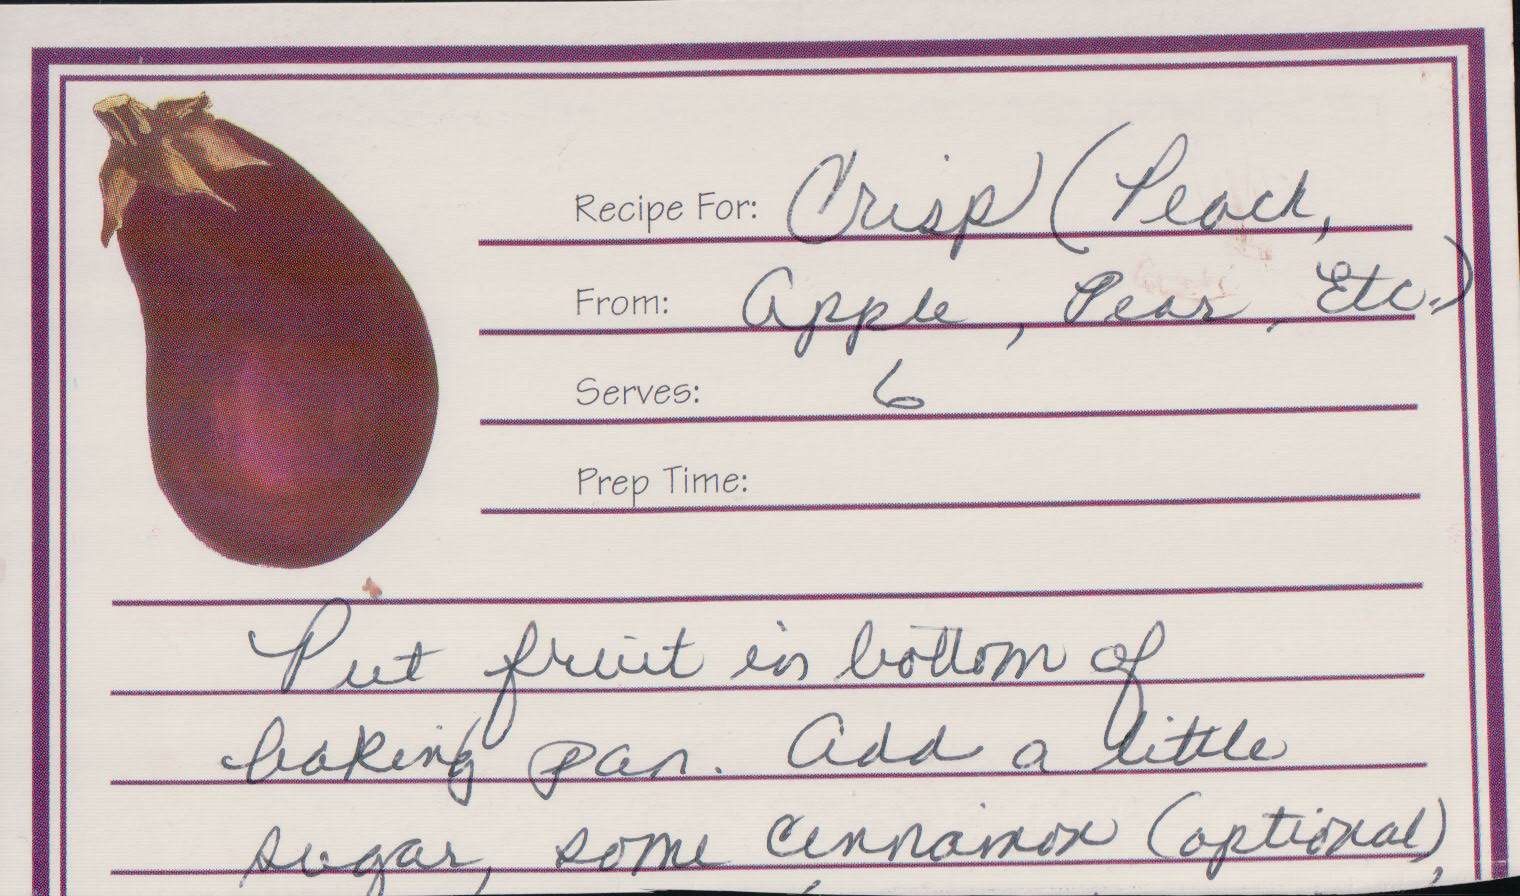 Recipe For: Crisp (Peach,
From: Apple, Pear, Etc.)
Serves: 6
Prep Time:
Put fruit in bottom of
baking pan. Add a little
sugar, some cinnamon (optional),